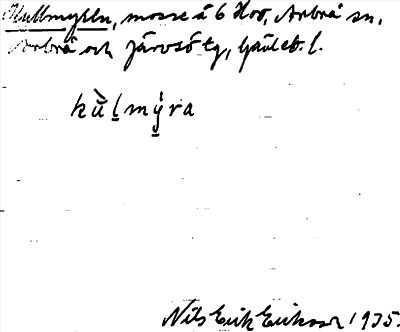 Kullmyren, mosse å 6 Hov, Arbrå sn,
Arbrå och Järvsö tg, Gävleb. l.
kùlmýra
Nils Erik Eriksson 1935.